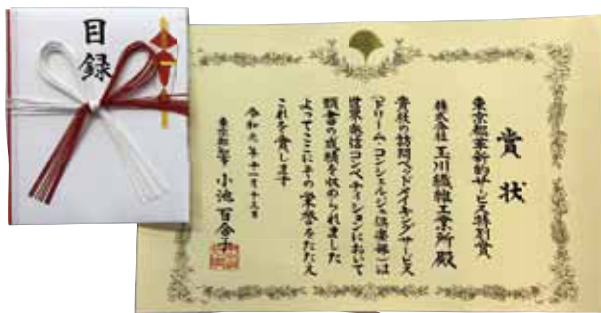 目録
賞状
東京都革新的サービス特別賞
株式会社 玉川繊維工業所 殿
貴社の訪問ベッドメイキングサービス
(ドリーム・コンシェルジュ倶楽部)は
世界発信コンペティションにおいて
顕著の成績を収められました
よってここにその栄誉をたたえ
これを賞します
令和元年十一月十三日
東京都知事 小池百合子